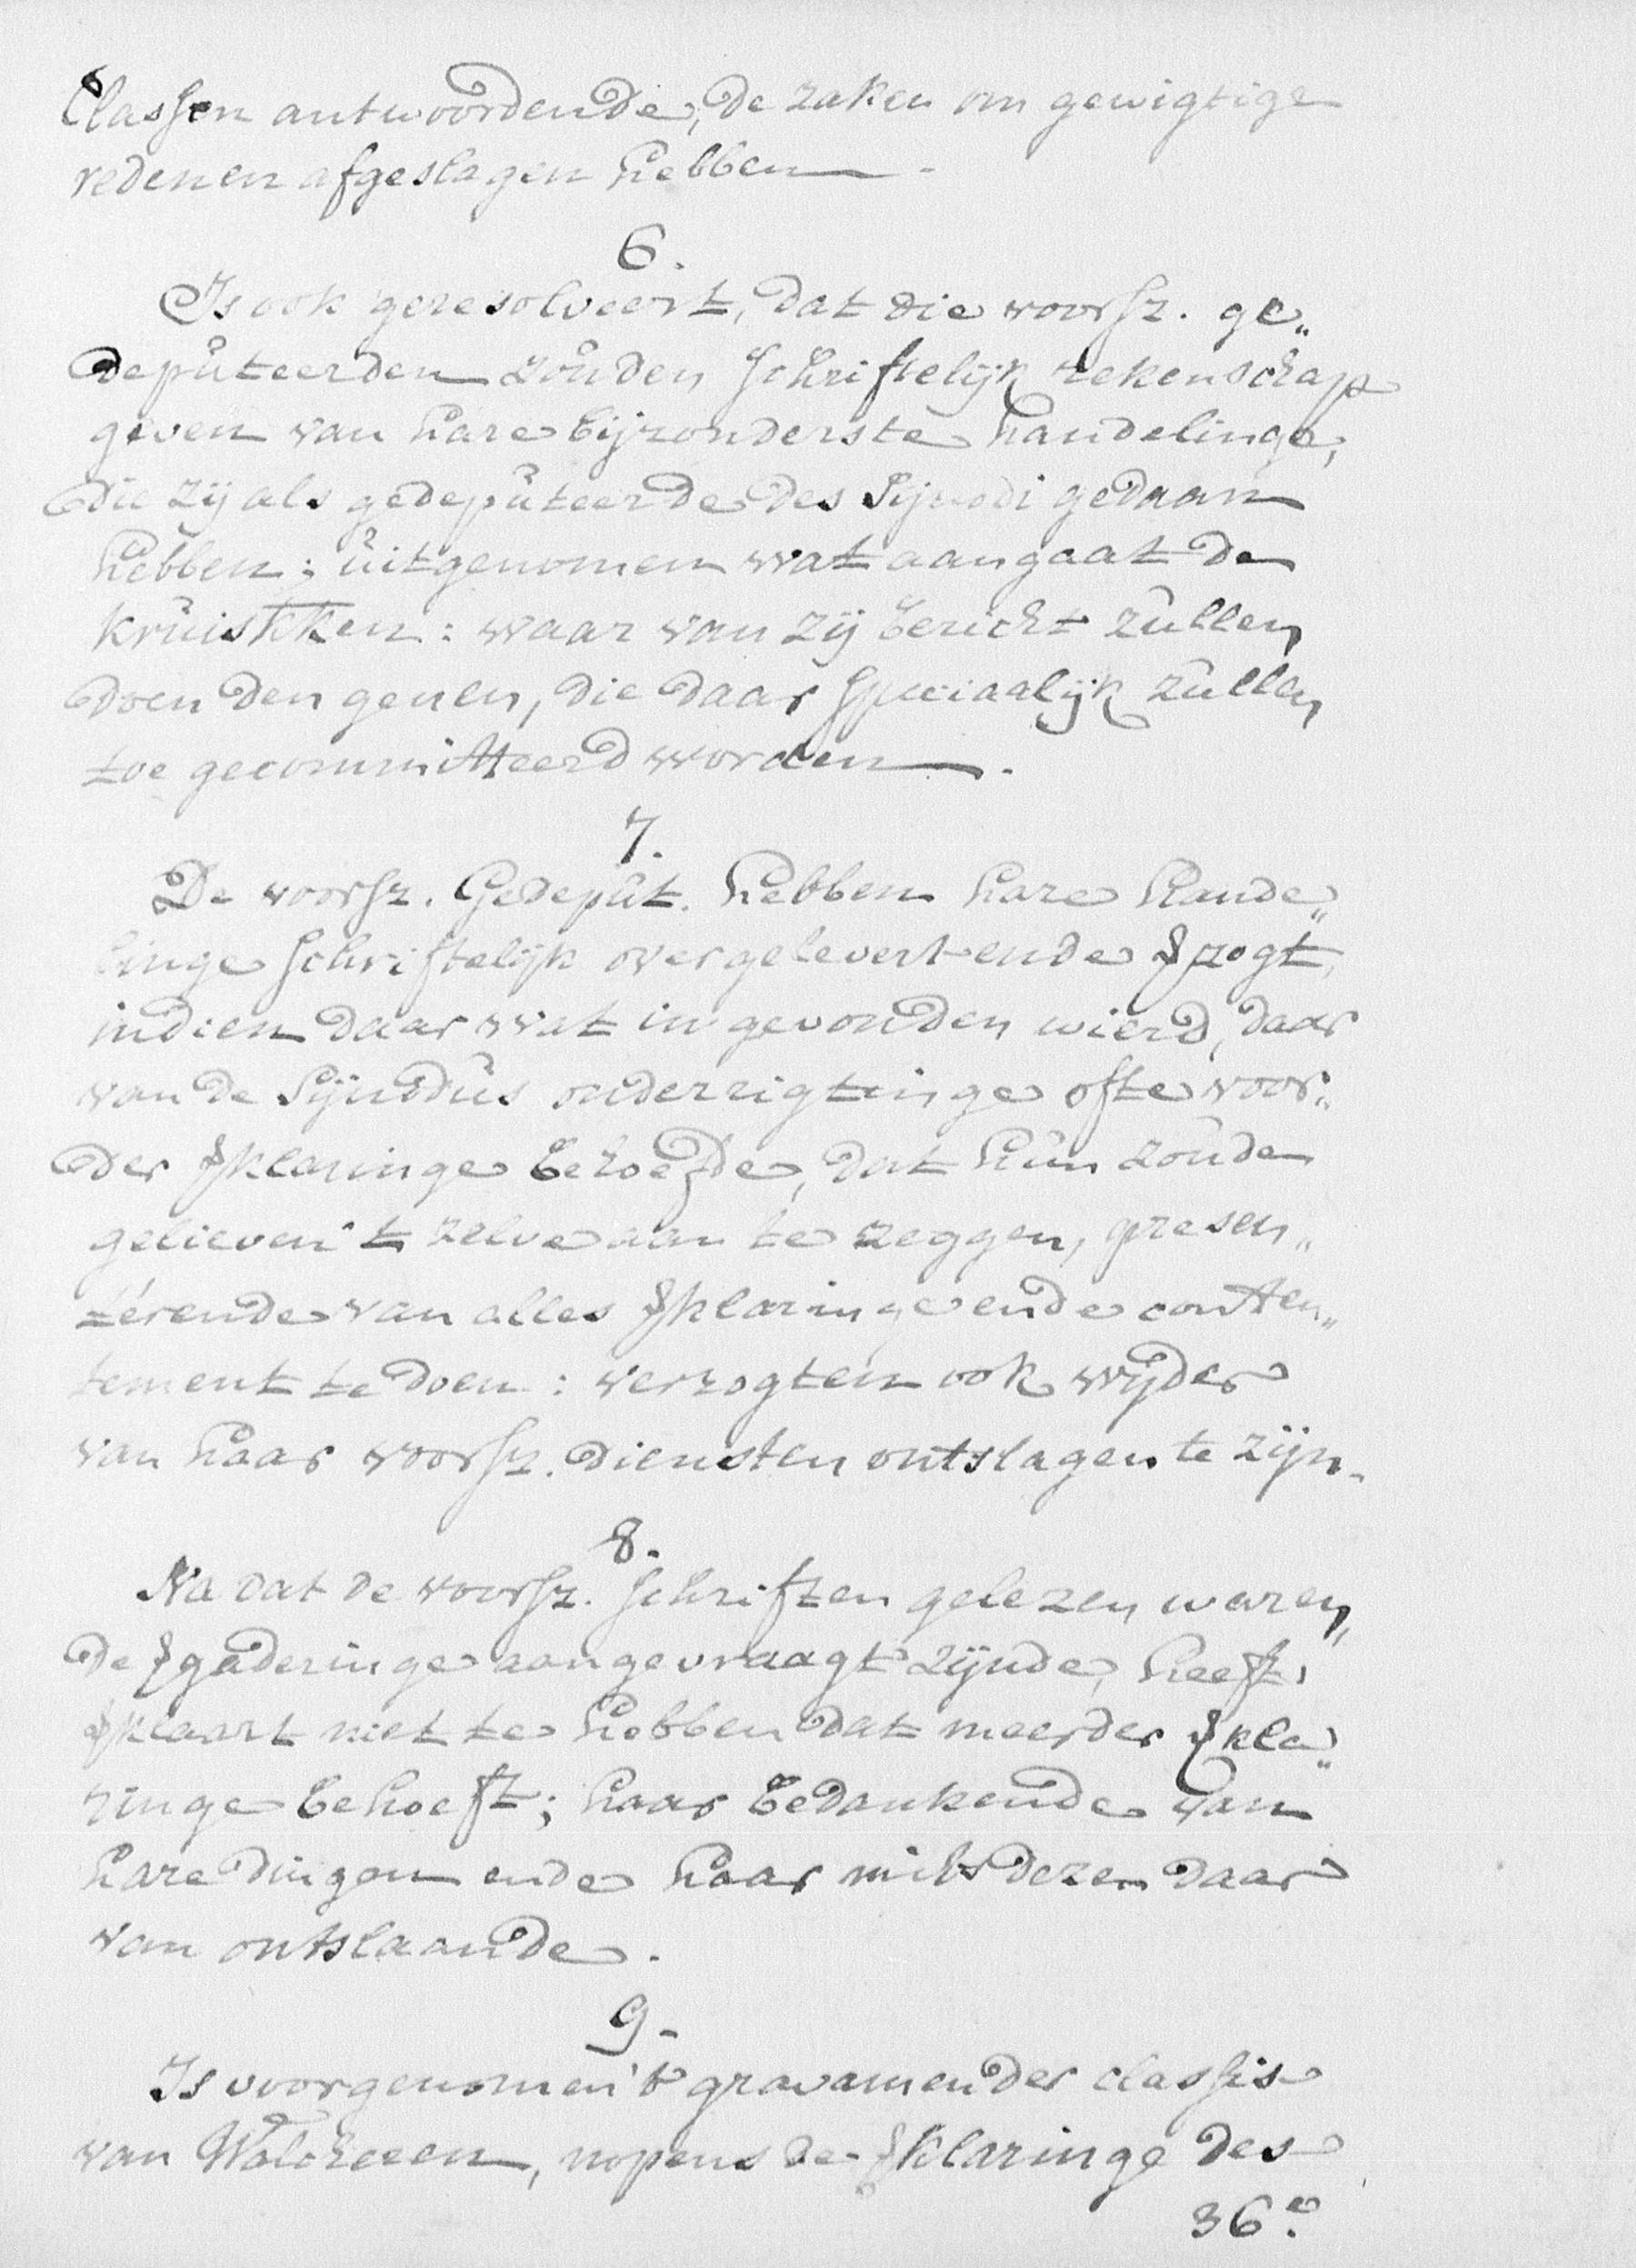 Classen antwoordende, de zaken om gewigtige
redenen afgeslagen hebben.
6.
Is ook geresolveert, dat die voorsz. ge„
deputeerden zouden schriftelijk rekenschap
geven van hare bijzonderste handelinge,
die zij als gedeputeerde des Sijnodi gedaan
hebben: uitgenomen wat aangaat de
kruiskken: waar van zij bericht zullen
doen den genen, die daar speciaalijk zullen
toe gecommitteerd worden.
7.
De voorsz. Gedeput. hebben hare hande„
linge schriftelijk overgelevert ende vzogt,
indien daar wat in gevonden wierd, daar
van de Sijnodus onderrigtinge ofte voor„
der vklaringe behoefde, dat hun zoude
gelieven 't zelve aan te zeggen, presen„
térende van alles vklaringe ende conten„
tement te doen: verzogten ook wijder
van haar voorsz. diensten ontslagen te zijn.
8.
Na dat de voorsz. schriften gelezen waren,
de vgaderinge aangevraagt zijnde, heeft
vklaart niet te hebben dat meerder vkla„
ringe behoeft; haar bedankende van
hare dingen ende haar mits dezen daar
van ontslaande.
9.
Is voorgenomen 't gravamen der classis
van Walcheren, nopens de vklaringe des
36e.